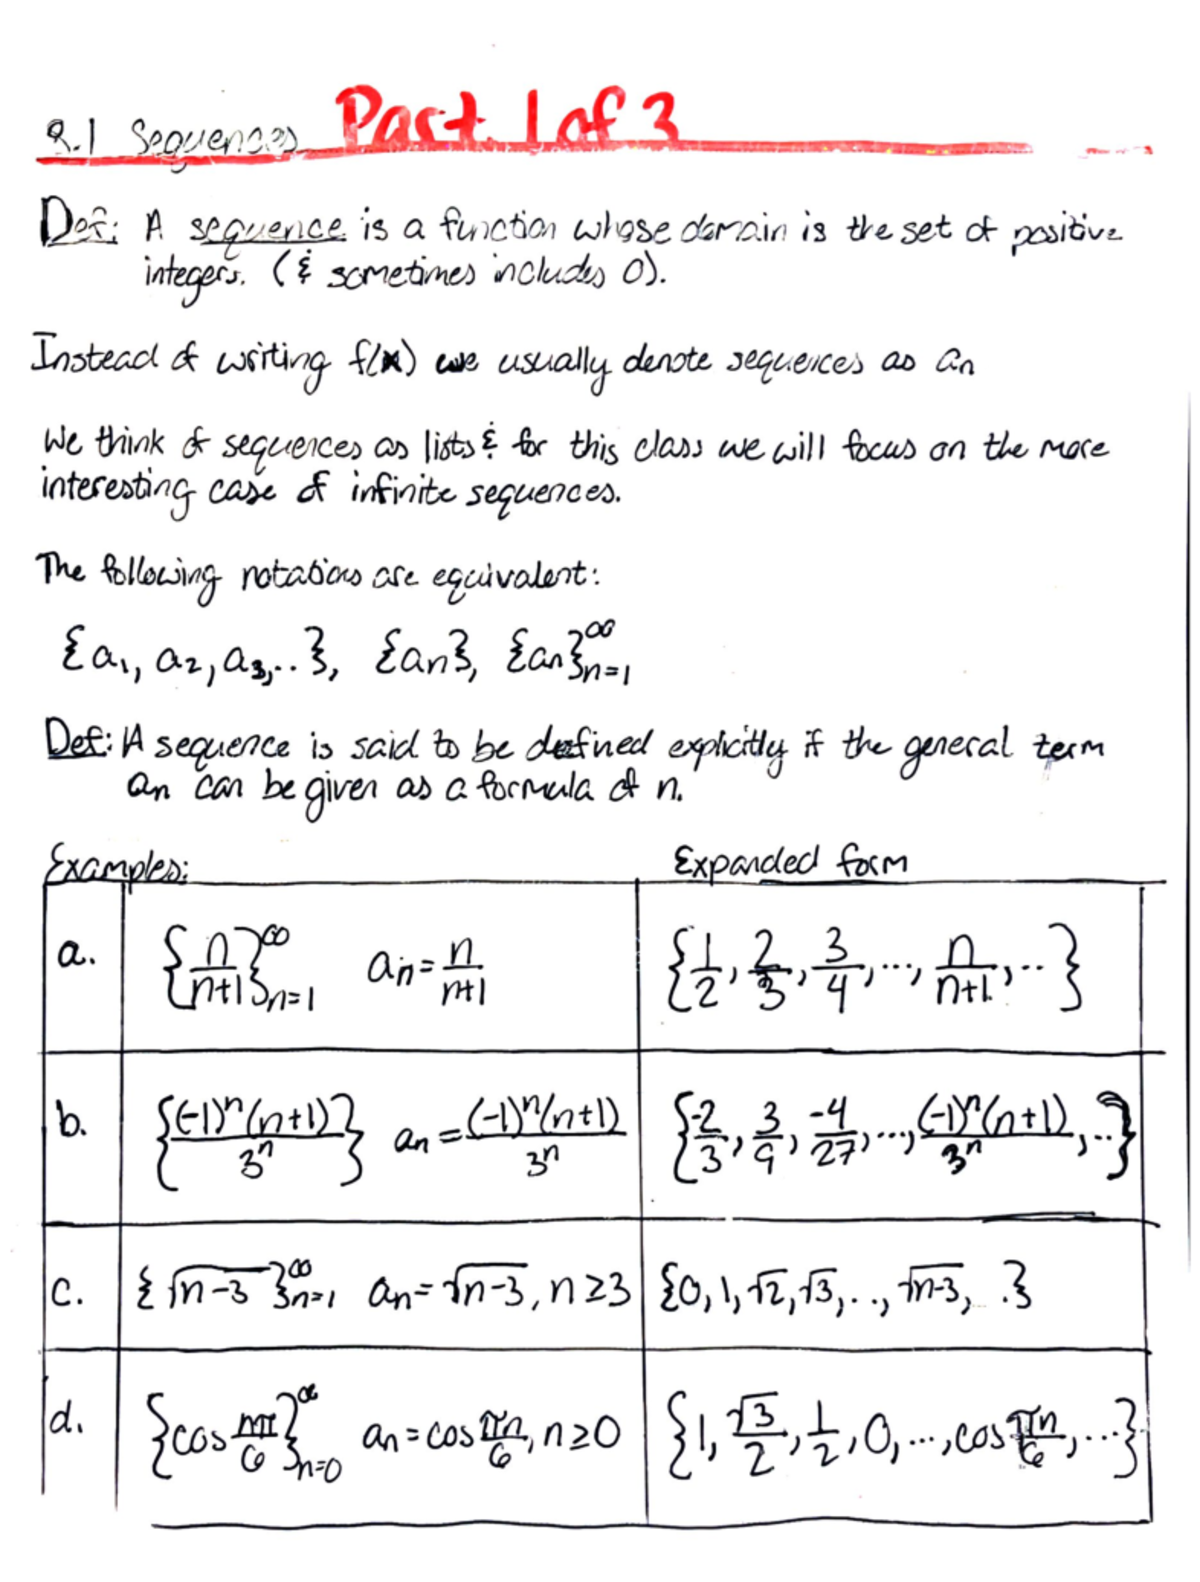 8.1 Sequences Part 1 of 3
Def: A sequence is a function whose domain is the set of positive
integers. (& sometimes includes 0).
Instead of writing f(x) we usually denote sequences as an
We think of sequences as lists & for this class we will focus on the more
interesting case of infinite sequences.
The following notations are equivalent:
{a₁, a₂, a₃,..}, {aₙ}, {aₙ}^∞_{n=1}
Def: A sequence is said to be defined explicitly if the general term
aₙ can be given as a formula of n.
Examples: Expanded form
a. {n/(n+1)}^∞_{n=1} aₙ = n/(n+1) {1/2, 2/3, 3/4, ..., n/(n+1), ..}
b. {(-1)ⁿ(n+1)/3ⁿ} aₙ = (-1)ⁿ(n+1)/3ⁿ {-2/3, 3/9, -4/27, ..., (-1)ⁿ(n+1)/3ⁿ, ..}
c. {√(n-3)}^∞_{n=1} aₙ = √(n-3), n≥3 {0, 1, √2, √3, .., √(n-3), ..}
d. {cos nπ/6}^∞_{n=0} aₙ = cos πn/6, n≥0 {1, √3/2, 1/2, 0, ..., cos πn/6, ...}